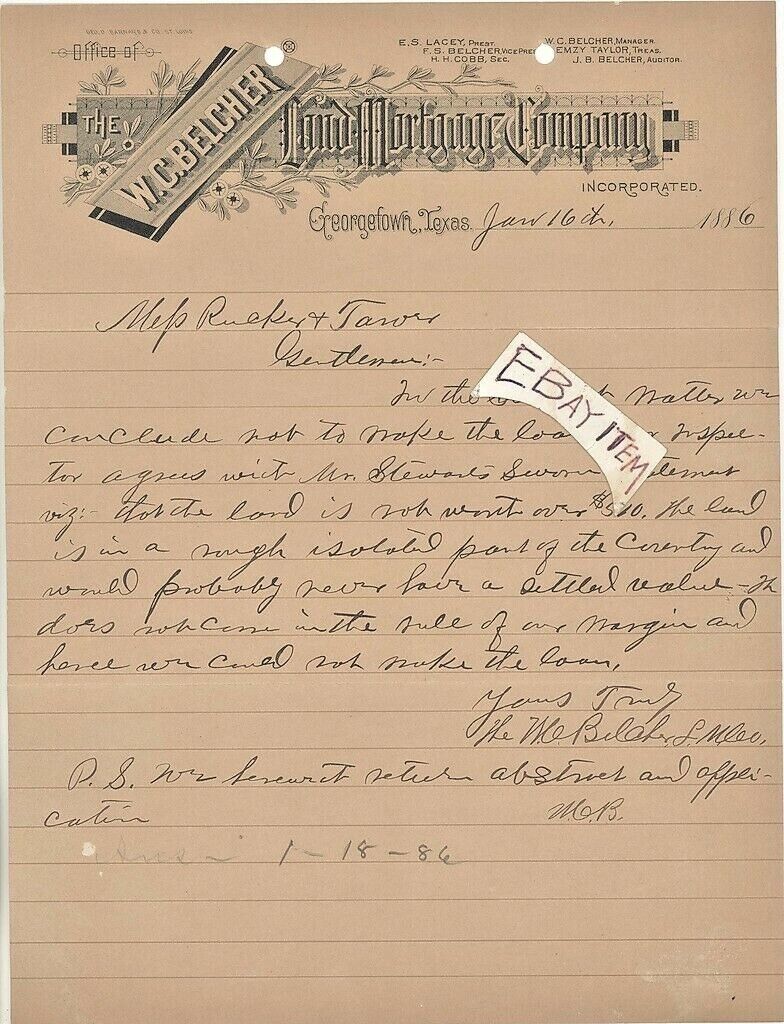 GEO. D. BARNARD & CO. ST. LOUIS
Office of
E. S. LACEY, PREST.
F. S. BELCHER, VICE PRES
H. H. COBB, SEC.
W. C. BELCHER, MANAGER.
EMZY TAYLOR, TREAS.
J. B. BELCHER, AUDITOR.
THE W.C. BELCHER Land Mortgage Company
INCORPORATED.
Georgetown, Texas. Jan 16th, 1886
Mess Rucker & Tarver
Gentlemen:-
In the matter we
conclude not to make the loan Inspec-
tor agrees with Mr. Stewart's Sworn
viz:- that the land is not worth over $510. The land
is in a rough isolated part of the Country and
would probably never have a settled value - It
does not come in the rule of our Margin and
hence we could not make the loan.
Yours Truly
The W.C. Belcher L. M. Co.
P.S. We herewith return abstract and appli-
cation W.C.B.
1-18-86
EBAY ITEM